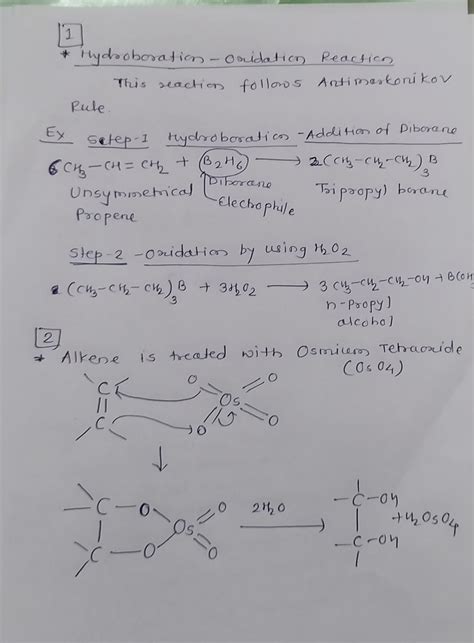 1
* Hydroboration - Oxidation Reaction
This reaction follows Antimarkonikov
Rule.
Ex Setep-1 Hydroboration - Addition of Diborane
6CH3-CH=CH2 + B2H6 → 2(CH3-CH2-CH2)3B
Unsymmetrical Diborane Tripropyl borane
Propene Electrophile
Step-2 - Oxidation by using H2O2
2(CH3-CH2-CH2)3B + 3H2O2 → 3 CH3-CH2-CH2-OH + B(OH
n-Propyl
alcohol
2
* Alkene is treated with Osmium Tetraoxide
(OsO4)
C O O
C Os
O O
C-O O
Os 2H2O -C-OH
C-O O -C-OH +H2OsO4